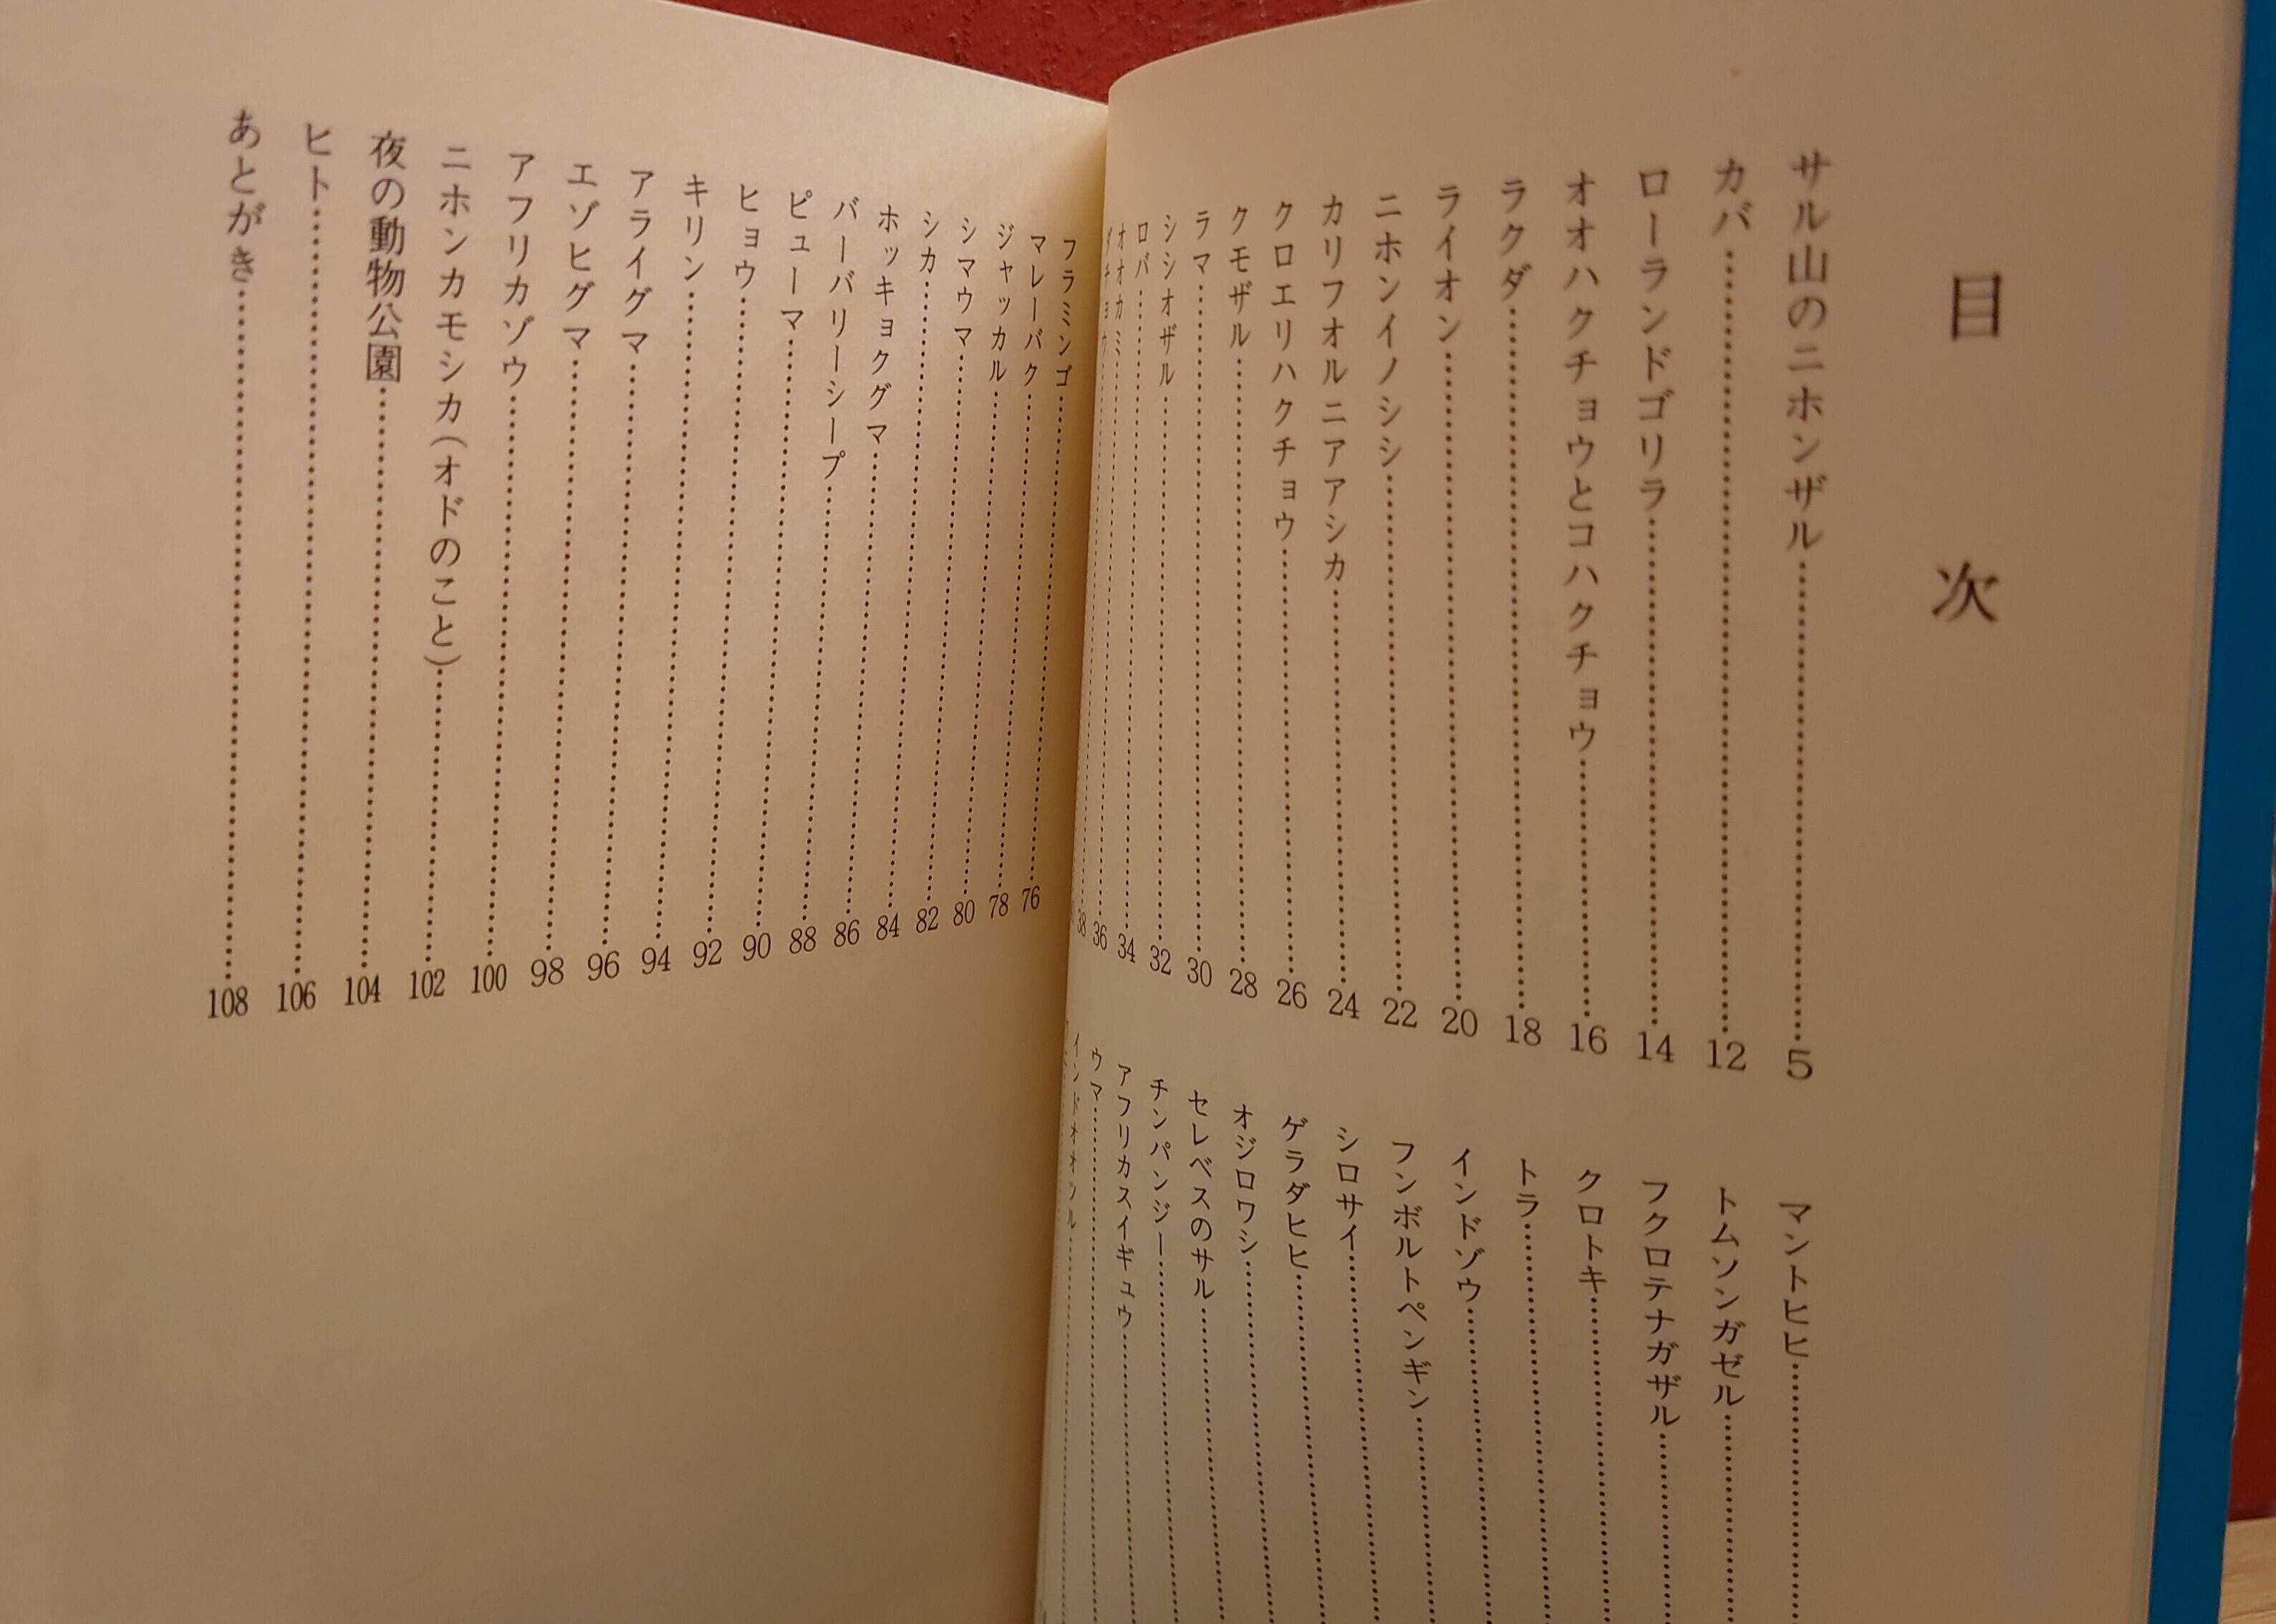 目次
サル山のニホンザル……5
カバ……12
ローランドゴリラ……14
オオハクチョウとコハクチョウ……16
ラクダ……18
ライオン……20
ニホンイノシシ……22
カリフオルニアアシカ……24
クロエリハクチョウ……26
クモザル……28
ラマ……30
シシオザル……32
ロバ……34
オオカミ……36
ダチョウ……38
マントヒヒ……
トムソンガゼル……
フクロテナガザル……
クロトキ……
トラ……
インドゾウ……
フンボルトペンギン……
シロサイ……
ゲラダヒヒ……
オジロワシ……
セレベスのサル……
チンパンジー……
アフリカスイギュウ……
ウマ……
インドオオヅル……
フラミンゴ……76
マレーバク……78
ジャッカル……80
シマウマ……82
シカ……84
ホッキョクグマ……86
バーバリーシープ……88
ピューマ……90
ヒョウ……92
キリン……94
アライグマ……96
エゾヒグマ……98
アフリカゾウ……100
ニホンカモシカ(オドのこと)……102
夜の動物公園……104
ヒト……106
あとがき……108